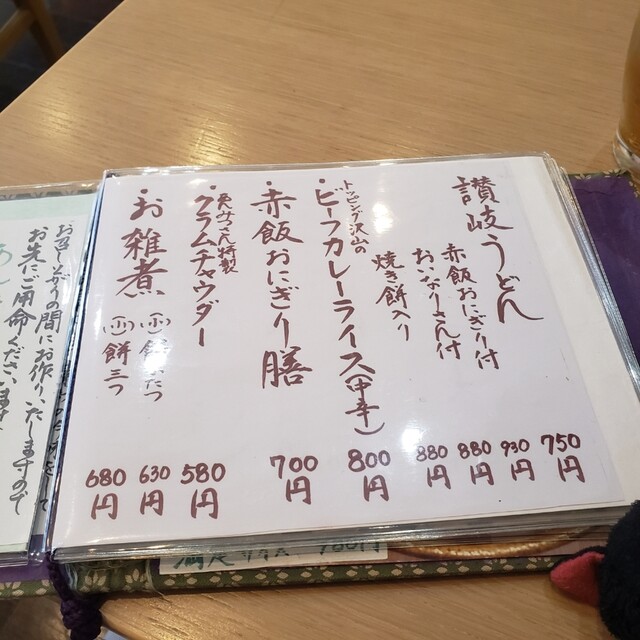 讃岐うどん 750円
赤飯おにぎり付 930円
おいなりさん付 880円
焼き餅入り 880円
・トッピング沢山の
ビーフカレーライス(甲辛) 800円
・赤飯おにぎり膳 700円
特製
クラムチャウダー 580円
・お雑煮 餅二つ 630円
餅三つ 680円
お召し
の間にお作りいたしますので
お先にご用命くださいませ
700円